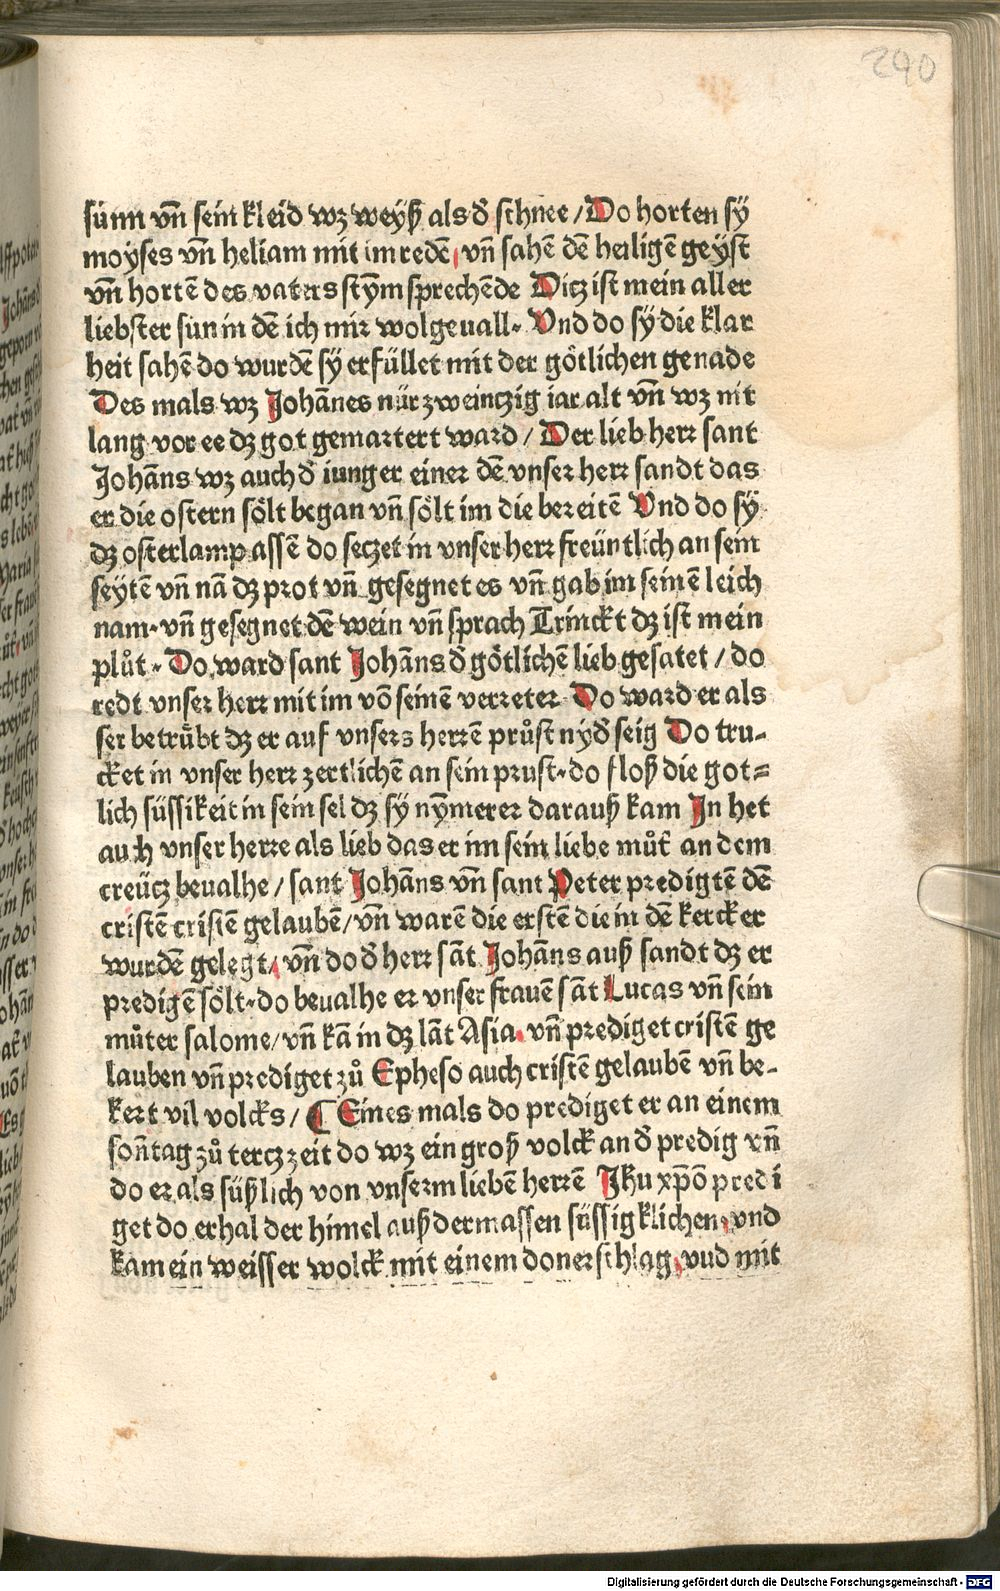 290
sunn vn̄ sein kleid wz weyß als d̕ schnee / Do horten sÿ
moyses vn̄ heliam mit im redē, vn̄ sahē dē heiligē geÿst
vn̄ hortē des vaters stȳm sprechēde Ditz ist mein aller
liebster sun in dē ich mir wolgeuall. Vnd do sÿ die klar
heit sahē do wurdē sÿ erfüllet mit der götlichen genade
Des mals wz Johānes nür zweintzig iar alt vn̄ wz nit
lang vor ee dz got gemartert ward / Der lieb herr sant
Johāns wz auch d̕ iunger einer dē vnser herr sandt das
er die ostern sölt began vn̄ sölt im die bereitē Vnd do sÿ
dz osterlamp assē do setzet in vnser herr freüntlich an sein
seytē vn̄ nā dz prot vn̄ gesegnet es vn̄ gab im seinē leich
nam. vn̄ gesegnet dē wein vn̄ sprach Trinckt dz ist mein
plůt. Do ward sant Johāns d̕ götlichē lieb gesatet / do
redt vnser herr mit im vō seinē verreter Do ward er als
ser betrůbt dz er auf vnsers herrē průst nyd̕ seig Do tru-
cket in vnser herr zertlichē an sein prust. do floß die got=
lich süssikeit in sein sel dz sÿ nȳmerer darauß kam In het
auch vnser herre als lieb das er im sein liebe můt̕ an dem
creütz beualhe / sant Johāns vn̄ sant Peter predigtē dē
cristē cristē gelaubē / vn̄ warē die erstē die in dē kercker
wurdē gelegt / vn̄ do d̕ herr sāt Johāns auß sandt dz er
predigē sölt. do beualhe er vnser frauē sāt Lucas vn̄ sein
můter salome / vn̄ kā in dz lāt Asia, vn̄ prediget cristē ge
lauben vn̄ prediget zů Epheso auch cristē gelaubē vn̄ be-
kert vil volcks / ¶ Eines mals do prediget er an einem
son̄tag zů tertz zeit do wz ein groß volck an d̕ predig vn̄
do er als süßlich von vnserm liebē herrē Jhu xp̄o predi
get do erhal der himel auß dermassen süssigklichen, vnd
kam ein weisser wolck mit einem donerschlag, vud mit
Digitalisierung gefördert durch die Deutsche Forschungsgemeinschaft - DFG